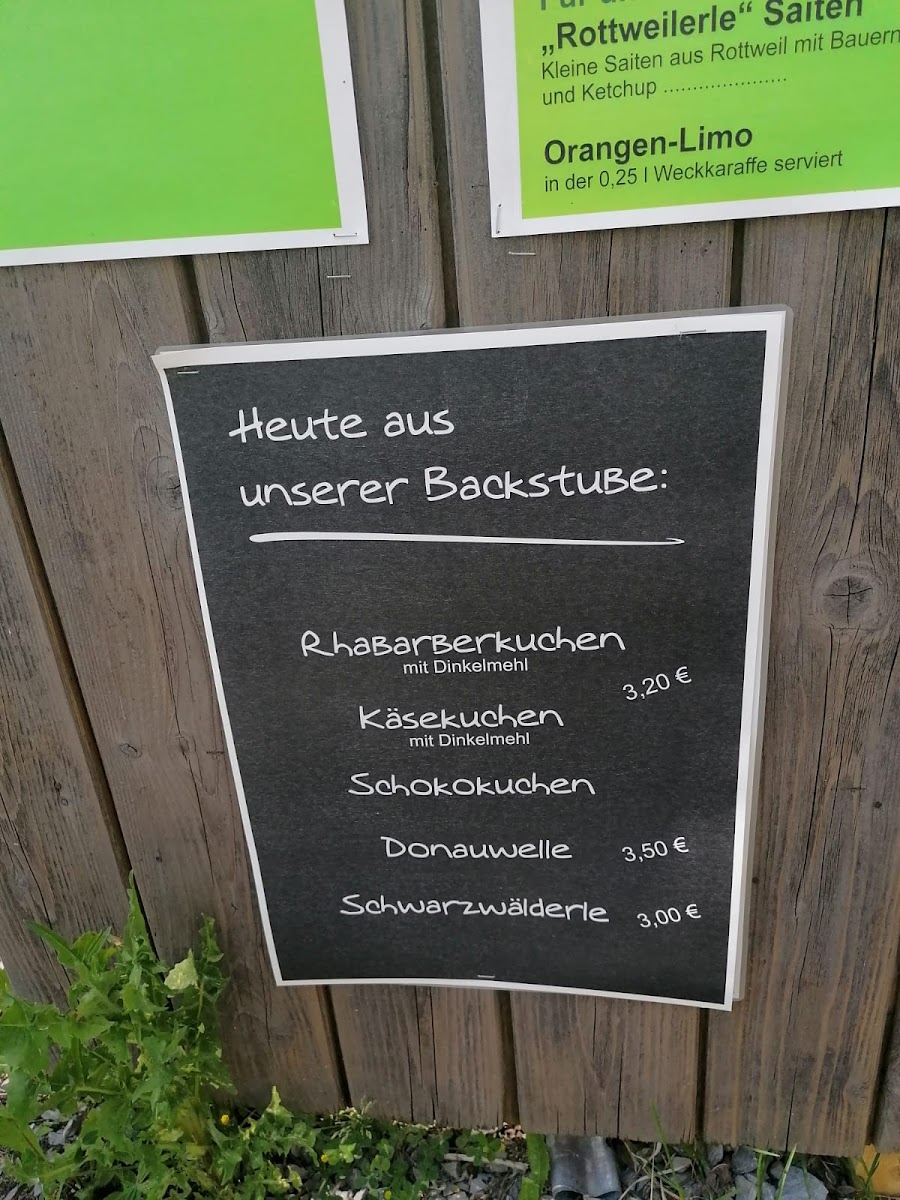 „Rottweilerle“ Saiten
Kleine Saiten aus Rottweil mit Bauern
und Ketchup .....................
Orangen-Limo
in der 0,25 l Weckkaraffe serviert
Heute aus
unserer Backstube:
Rhabarberkuchen
mit Dinkelmehl
3,20 €
Käsekuchen
mit Dinkelmehl
Schokokuchen
Donauwelle 3,50 €
Schwarzwälderle 3,00 €